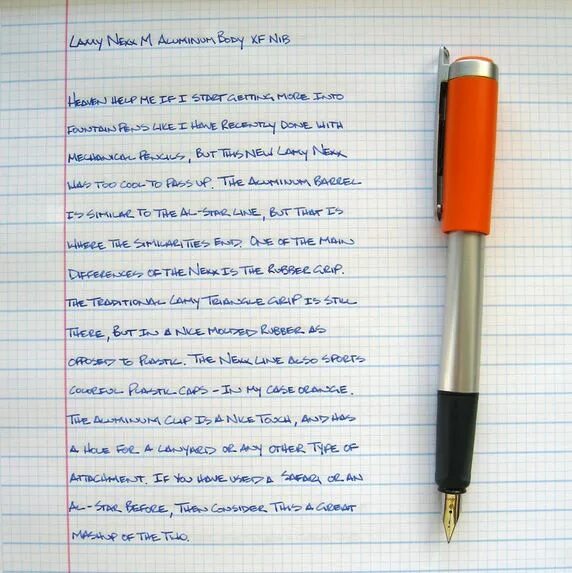 LAMY NEXX M ALUMINUM BODY XF NIB
HEAVEN HELP ME IF I START GETTING MORE INTO
FOUNTAIN PENS LIKE I HAVE RECENTLY DONE WITH
MECHANICAL PENCILS, BUT THIS NEW LAMY NEXX
WAS TOO COOL TO PASS UP. THE ALUMINUM BARREL
IS SIMILAR TO THE AL-STAR LINE, BUT THAT IS
WHERE THE SIMILARITIES END. ONE OF THE MAIN
DIFFERENCES OF THE NEXX IS THE RUBBER GRIP.
THE TRADITIONAL LAMY TRIANGLE GRIP IS STILL
THERE, BUT IN A NICE MOLDED RUBBER AS
OPPOSED TO PLASTIC. THE NEXX LINE ALSO SPORTS
COLORFUL PLASTIC CAPS - IN MY CASE ORANGE.
THE ALUMINUM CLIP IS A NICE TOUCH, AND HAS
A HOLE FOR A LANYARD OR ANY OTHER TYPE OF
ATTACHMENT. IF YOU HAVE USED A SAFARI OR AN
AL-STAR BEFORE, THEN CONSIDER THIS A GREAT
MASHUP OF THE TWO.